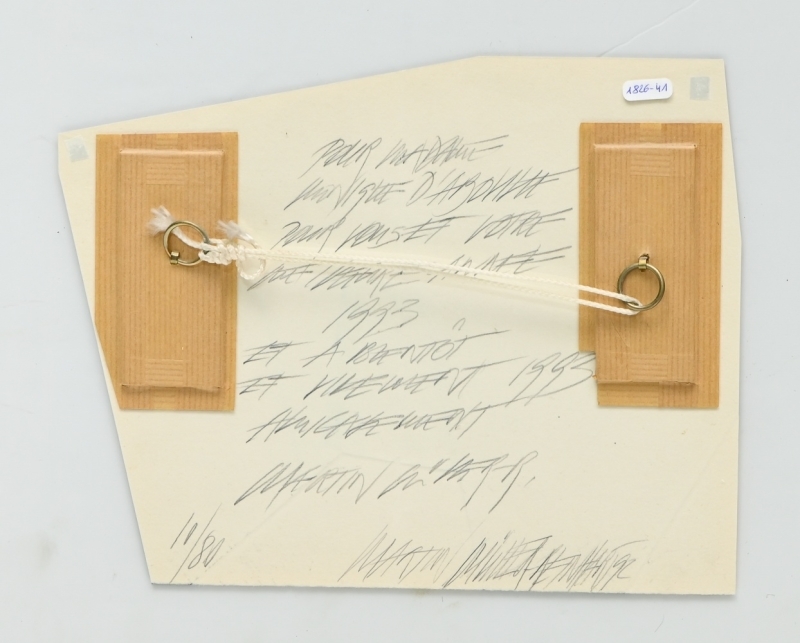 1826-41
POUR MADAME
MONIQUE D'
POUR VOUS ET VOTRE
ANNÉE
1993
ET A BIENTÔT
ET VIVEMENT 1993
AMICALEMENT
MARTIN MÜLLER R.
10/80
MARTIN MÜLLER